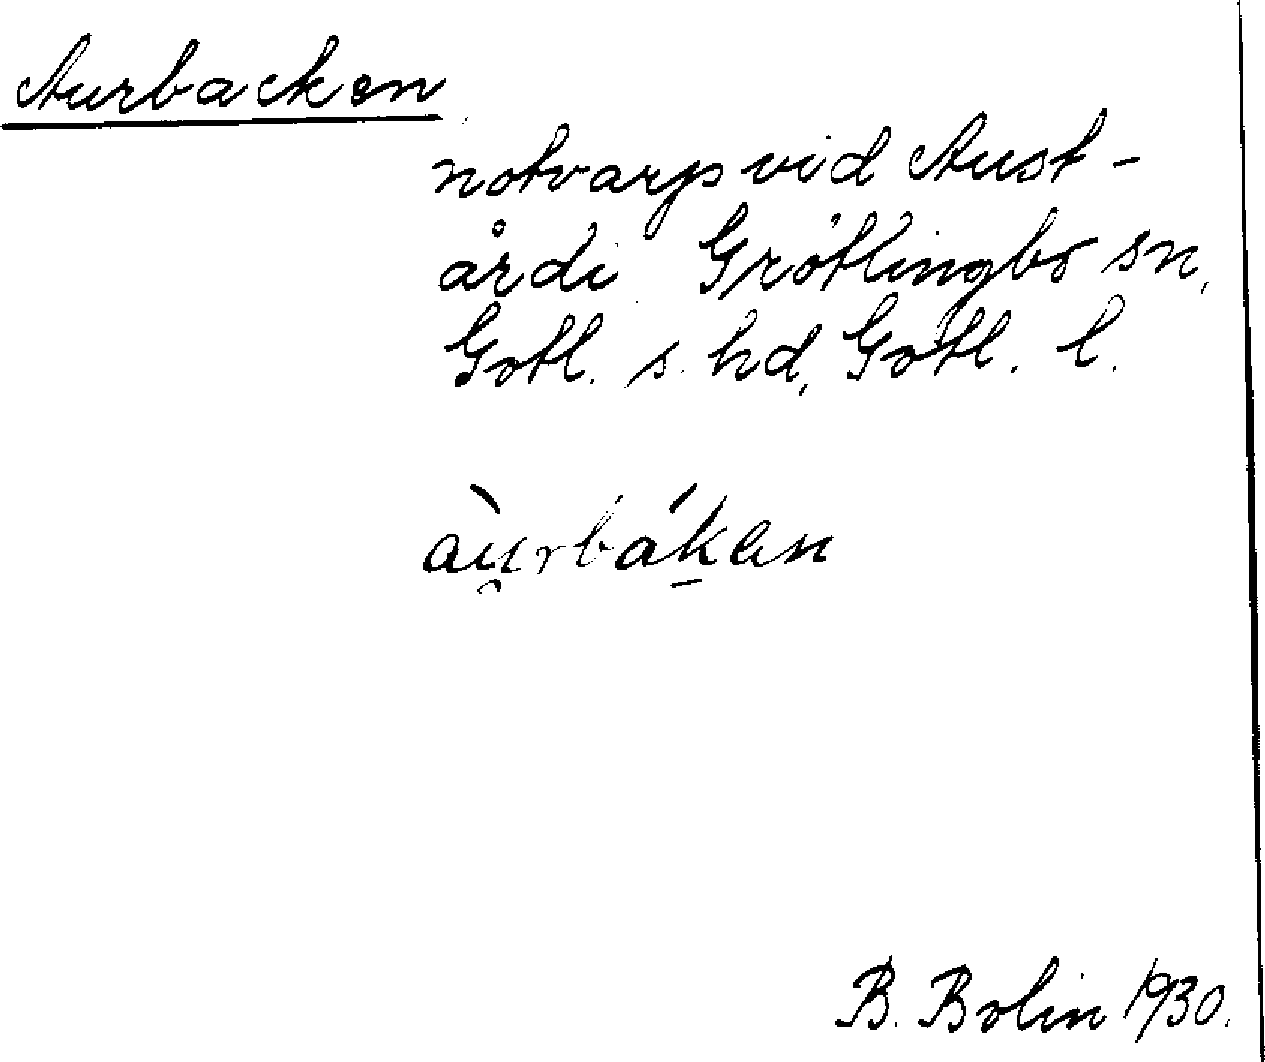 Aurbacken
notvarp vid Aust-
årdi Grötlingbo sn,
Gotl. s. hd, Gotl. l.
àu̯rbák̠en
B. Bolin 1930.